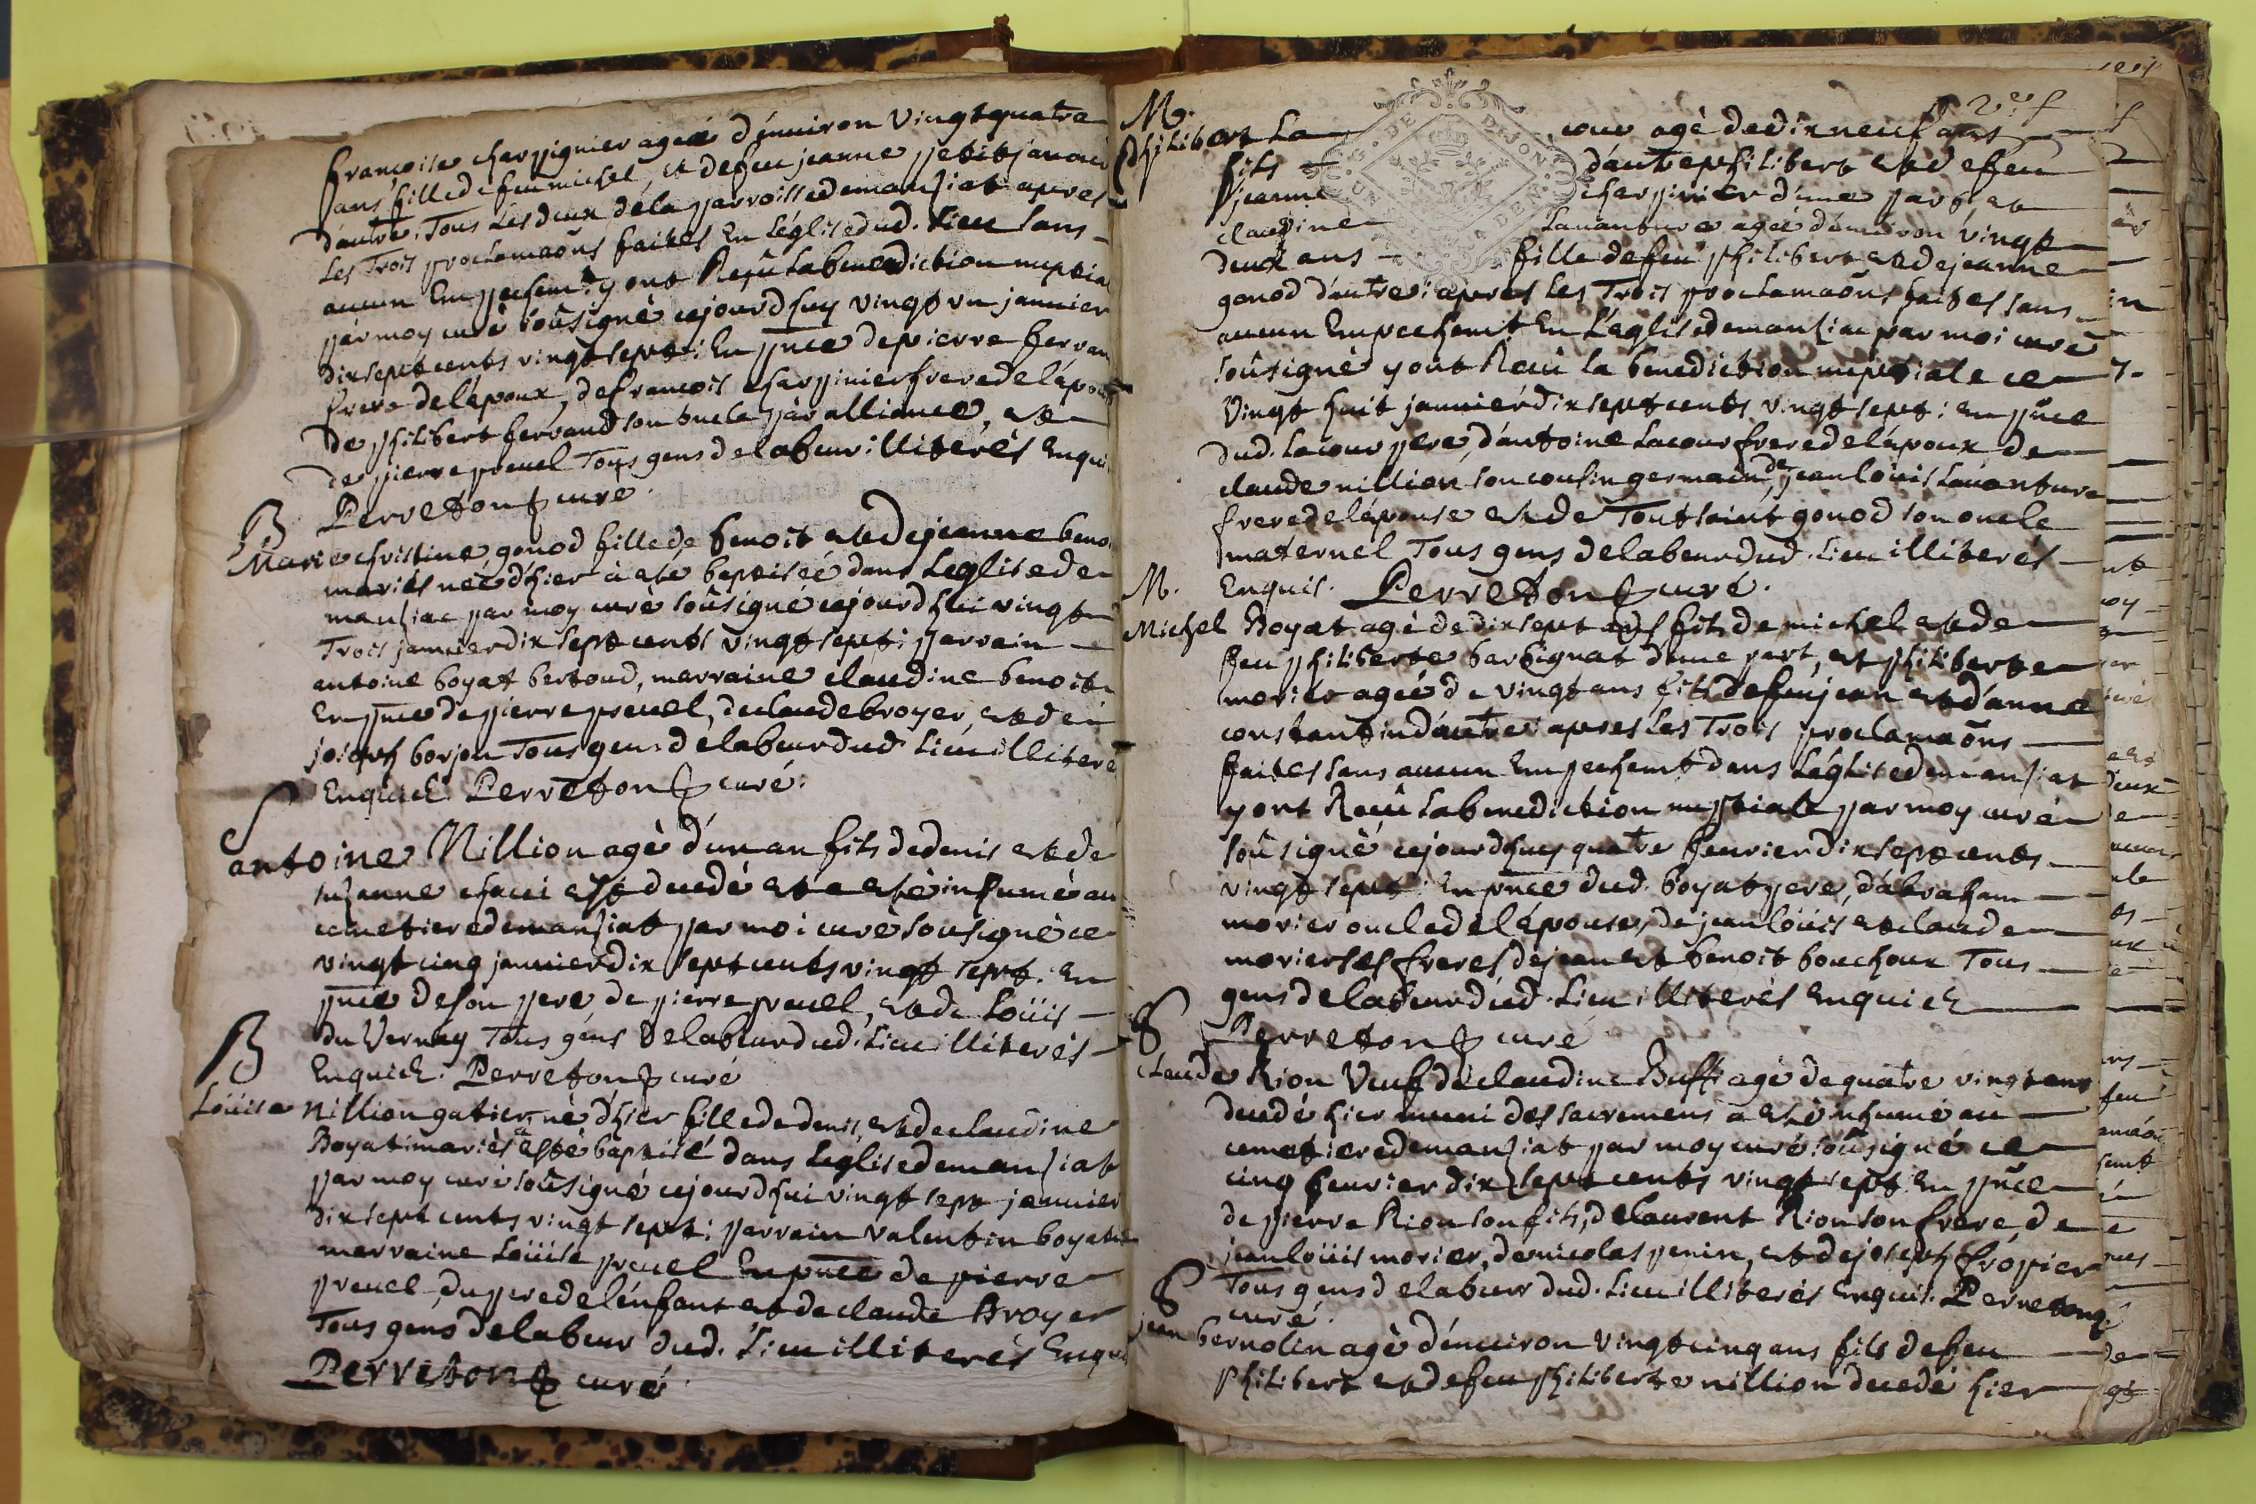 françoise charpignier agée d'énuiron vingt quatre
ans fille de feu michel, et de feu jeanne petitjanoud
dautre. Tous Les deux de la parroisse de manziat apres
Les Trois proclamaõns faites En Léglise dud. Lieu sans
aucun Empechemt y ont Reçû La benediction nuptia
par moy curé soûsigné cejourdhuy vingt vn januier
dix sept cents vingt sept: En pñce de pierre ferrau
frere de lépoux, de françois charpinier frere de lépou
de philibert ferraud son oncle par alliance, et
de pierre preuel Tous gens de labeur illiterés Enqui
Perreton curé.
B
Marie christine gonod fille de benoit et de jeanne beno
mariés née d'hier à esté baptisée dans Léglise de
manziac par moy curé soûsigné cejourdhui vingt
Trois januier dix sept cents vingt sept: parrain
antoine boyat bertoud, marraine claudine benoit
En pñce de pierre preuel, de claude broyer, et de
joseph borjon Tous gens de labeur dud. Lieu illiteré
Enquick Perreton curé.
S
antoine Nillion agé d'un an fils de denis et de
suzanne chacci est decedé et a eté inhumé au
cemetiere de manziat par moi curé soûsigné ce
vingt cinq januier dix sept cents vingt sept: En
pñce de son pere de pierre preuel, et de Loüis
du Vernay Tous gens de labeur dud. Lieu illiterés
Enquick. Perreton curé
B
Loüise Nillion gatier né d'hier fille de denis, et de claudine
Boyat mariés à esté baptisé dans Léglise de manziat
par moy curé soûsigné cejourdhui vingt sept januier
dix sept cents vingt sept: parrain valentin boyat
marraine Loüise preuel En pñce de pierre
preuel, du pere de lénfant et de claude Broyer
Tous gens de labeur dud. Lieu illiterés Enqui
Perreton curé
M.
Philibert La cour agé de dix neuf ans
fils dautre philibert et de feu
jeanne charpinier d'une part, et
claudine Lauanture agée d'énuiron vingt
deux ans fille de feu philibert et de jeanne
gonod dautre: apres Les Trois proclamaõns faites sans
aucun Empechemt En Léglise de manziac par moi curé
soûsigné y ont Reçû la benediction nuptiale ce
Vingt huit januier dix sept cents vingt sept: en pñce
dud. Lacour pere, d'antoine Lacour frere de lépoux de
claude nillion son cousin germain, de jean loüis Lauanture
frere de lépouse et de Toutsaint gonod son oncle
maternel Tous gens de labeur dud. Lieu illiterés
Enquis. Perreton curé.
M.
Michel Boyat agé de dix sept ans fils de michel et de
feu philiberte barbignat d'une part, et philiberte
morier agée de vingt ans fille de feu jean et d'anne
constantin dautre: apres Les Trois proclamaõns
faites sans aucun Empechemt dans Léglise de manziat
y ont Reçû La benediction nuptiale par moy curé
soûsigné cejourdhuy quatre feurier dix sept cents
vingt sept: En pñce dud. boyat pere, d'abraham
morier oncle de lépouse, de jean loüis et claude
morier ses freres, de jean et benoit bouchoux Tous
gens de labeur dud. Lieu illiterés Enquick
Perreton curé
S
claude Rion Veuf de claudine Buffi agé de quatre vingt ans
decedé hier muni des sacremens a eté inhumé au
cemetiere de manziat par moy curé soûsigné ce
cinq feurier dix sept cents vingt sept: En pñce
de pierre Rion son fils, de laurent Rion son frere, de
jean loüis morier, de nicolas penin, et de joseph fropier
Tous gens de labeur dud. Lieu illiterés Enquis. Perreton
curé.
S
jean bernolin agé d'énuiron vingt cinq ans fils de feu
philibert et de feu philiberte nillion decedé hier